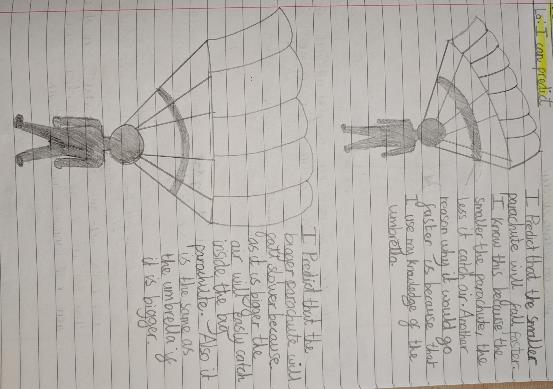 Lo: I can predict
I Predict that the smaller
parachute will fall faster.
I know this because the
smaller the parachute, the
less it catch air. Another
reason why it would go
faster is because that
I use my knowledge of the
umbrella.
I Predict that the
bigger parachute will
fall slower because
as it is bigger the
air will easily catch
inside the big
parachute. Also it
is the same as
the umbrella if
it is bigger.